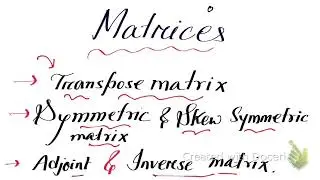 Matrices
→ Transpose matrix
→ Symmetric & Skew Symmetric
matrix
→ Adjoint & Inverse matrix.